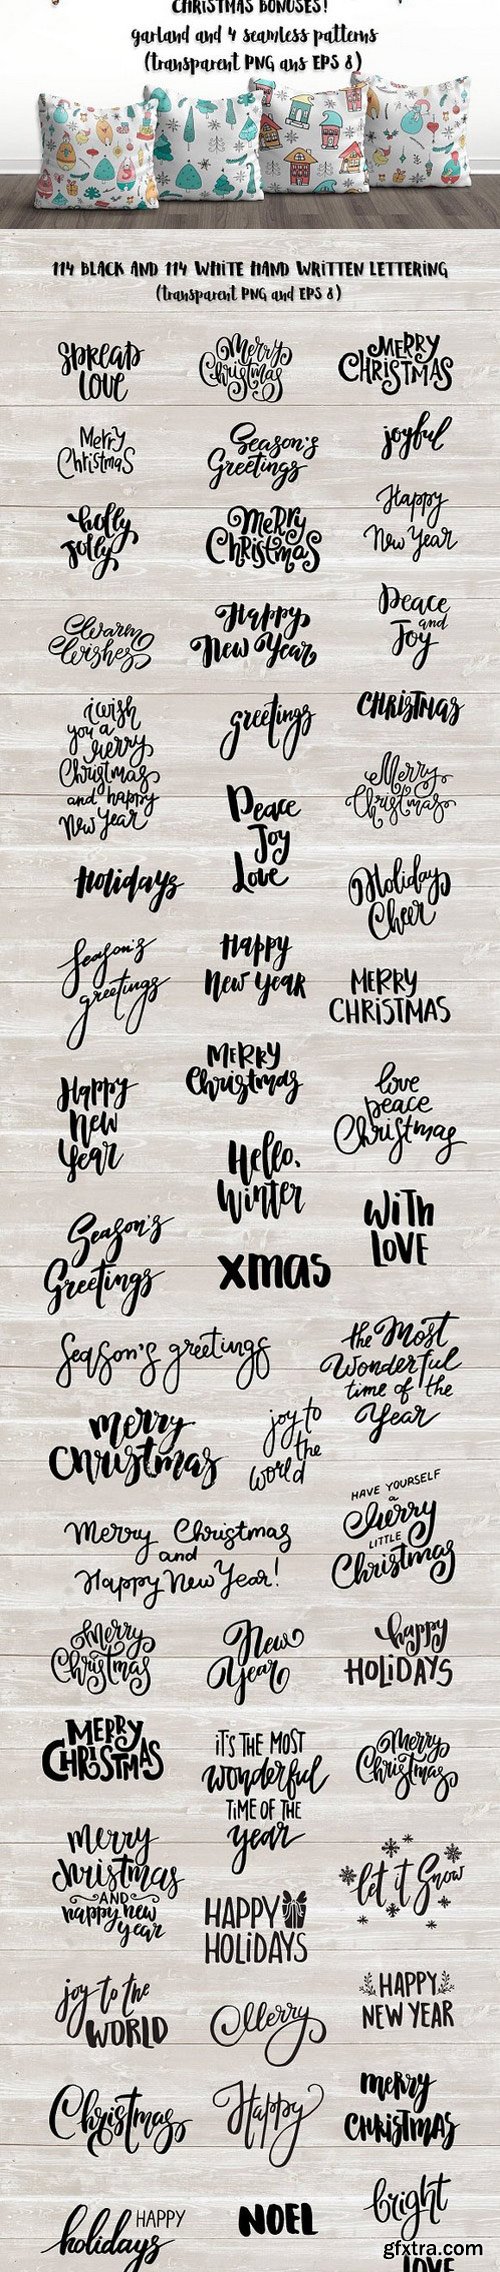 CHRISTMAS BONUSES!
garland and 4 seamless patterns
(transparent PNG ans EPS 8)
114 BLACK AND 114 WHITE HAND WRITTEN LETTERING
(transparent PNG and EPS 8)
spread
love
Merry
Christmas
MERRY
CHRISTMAS
Merry
Christmas
Season's
Greetings
joyful
holly
jolly
Merry
Christmas
Happy
New Year
Warm
Wishes
Happy
New Year
Peace
and
Joy
i wish
you a
Merry
Christmas
and happy
New Year
greetings
CHRISTMAS
Peace
Joy
Love
Merry
Christmas
Holidays
Holiday
Cheer
Season's
greetings
Happy
New Year
MERRY
CHRISTMAS
MERRY
Christmas
Happy
New
Year
love
peace
Christmas
Hello,
Winter
With
LOVE
Season's
Greetings
xmas
Season's greetings
the Most
Wonderful
time of the
Year
merry
Christmas
joy to
the
world
HAVE YOURSELF
a
Merry
LITTLE
Christmas
Merry Christmas
and
Happy New Year!
Merry
Christmas
New
Year
happy
HOLIDAYS
MERRY
CHRISTMAS
iT'S THE MOST
wonderful
TiME OF THE
year
Merry
Christmas
merry
christmas
AND
happy new
year
let it Snow
HAPPY
HOLIDAYS
joy to the
WORLD
Merry
HAPPY
NEW YEAR
Christmas
Happy
merry
CHRISTMAS
HAPPY
holidays
NOEL
bright
LOVE
gfxtra.com